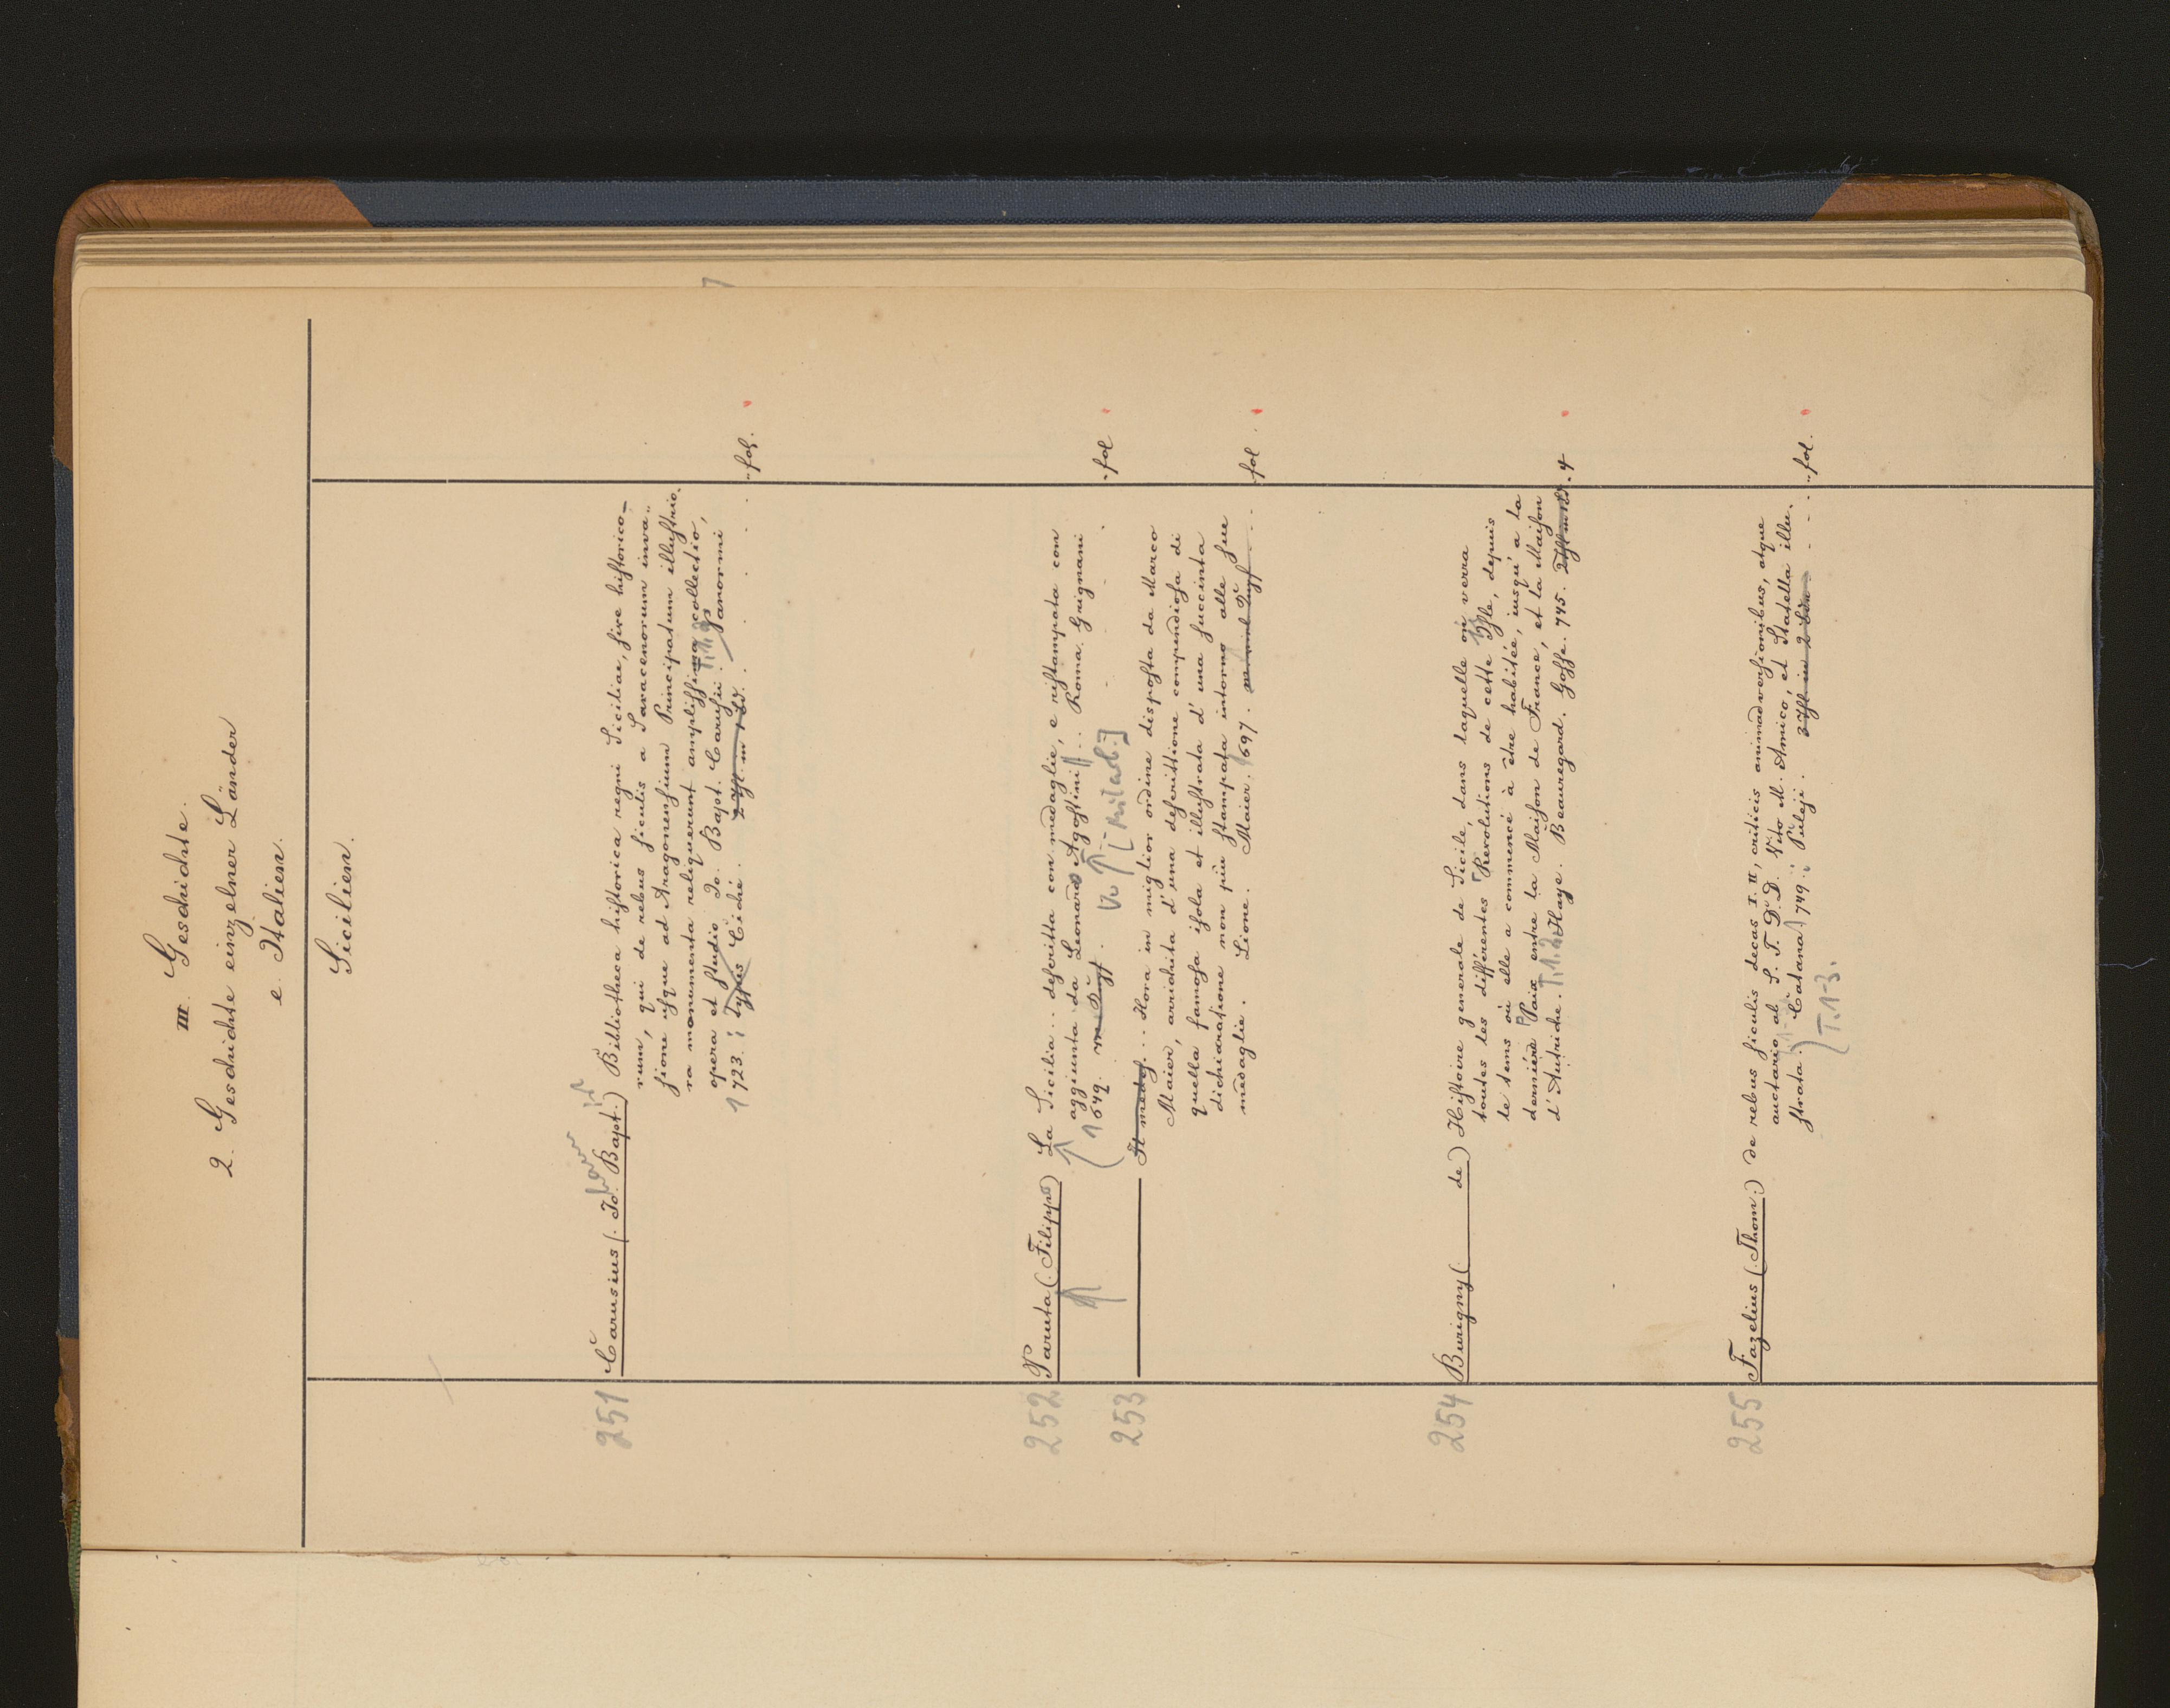 III. Geschichte.
2. Geschichte einzelner Länder
e. Italien.
Sicilien.
251 Carusius (: Jo. Bapt :) Bibliotheca historica regni Siciliae, sive historico-
rum, qui de rebus siculis a Saracenorum inva„
sione usque ad Aragonensium Principatum illustrio„
ra monumenta reliquerunt amplissima collectio,
opera et studio Jo. Bapt. Carusii. T.1.2. Panormi
1723. : typis Cichè. 2 Thl. in 1 Bd. fol.
252 Paruta (: Filippo) La Sicilia .. descritta con medaglie, e ristampata con
aggiunta da Leonardo Agostini .. Roma. Grignani
1649. m. Kupf. Vo [Mit Abb.] fol
253 Il medes. ... Hora in miglior ordine disposta da Marco
Maier, arrichita d'una descrittione compendiosa di
quella famosa isola et illustrata d'una succinta
dichiaratione non più stampata intorno alle sue
medaglie. Lione. Maier. 1697. fol.
254 Burigny ( de) Histoire generale de Sicile, dans laquelle on verra
toutes les différentes Revolutions de cette Isle, depuis
le tems où elle a commencé à être habitée, jusqu'à la
dernière Paix entre la Maison de France, et la Maison
d'Autriche. T.1.2. Haye. Beauregard. Gosse. 745. 2 Thl. in 1 Bd. 4
255 Fazelius (: Thom :) de rebus siculis decas I. II, criticis animadversionibus, atque
auctario ab S. T. D. D. Vito M. Amico, et Statella illu„
strata. Catana 749. : Puleji. 3 Thl. in 2 Bdn fol.
(T.1-3.